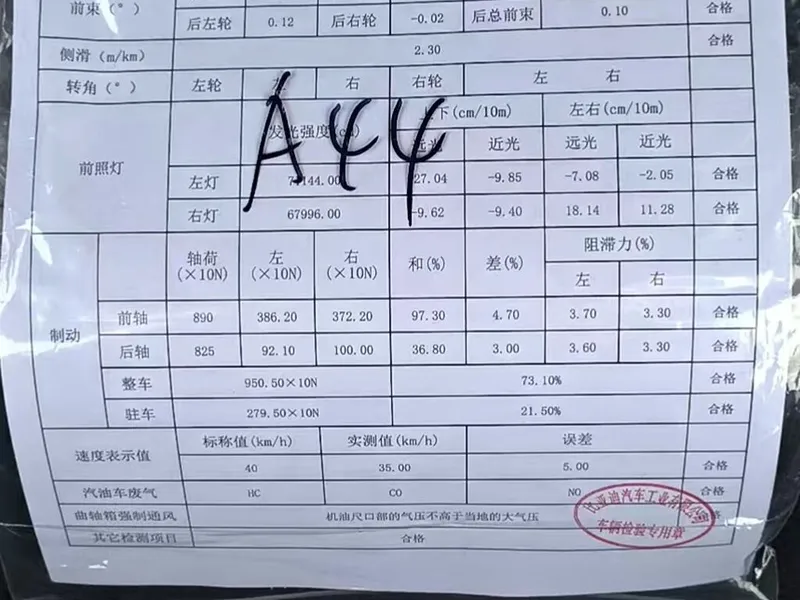 前束(°)
后左轮 0.12 后右轮 -0.02 后总前束 0.10 合格
侧滑(m/km) 2.30 合格
转角(°) 左轮 右 右轮 左 右
A44
前照灯 发光强度(cd) 下(cm/10m) 左右(cm/10m)
远光 近光 远光 近光
左灯 144.00 27.04 -9.85 -7.08 -2.05 合格
右灯 67996.00 -9.62 -9.40 18.14 11.28 合格
制动 轴荷(×10N) 左(×10N) 右(×10N) 和(%) 差(%) 阻滞力(%)
左 右
前轴 890 386.20 372.20 97.30 4.70 3.70 3.30 合格
后轴 825 92.10 100.00 36.80 3.00 3.60 3.30 合格
整车 950.50×10N 73.10% 合格
驻车 279.50×10N 21.50% 合格
速度表示值 标称值(km/h) 实测值(km/h) 误差
40 35.00 5.00 合格
汽油车废气 HC CO NO 合格
曲轴箱强制通风 机油尺口部的气压不高于当地的大气压 格
其它检测项目 合格
比亚迪汽车工业有限公司
车辆检验专用章